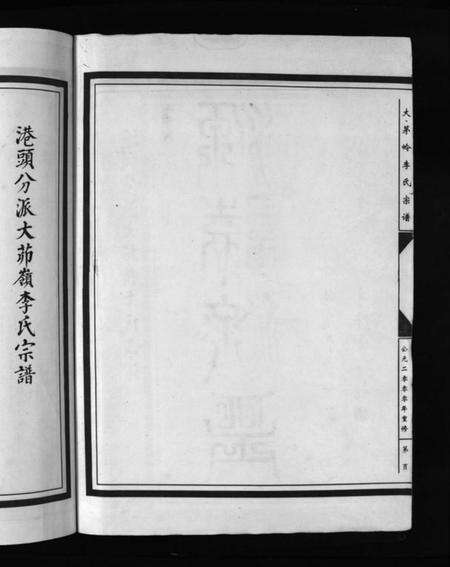 大茅岭李氏宗谱
公元二零零零年重修
第 頁
港頭分派大茆嶺李氏宗譜